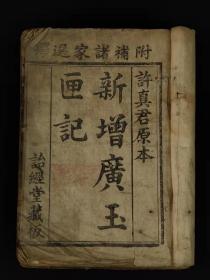 附補諸家選擇
許真君原本
新增廣玉
匣記
詒經堂藏板